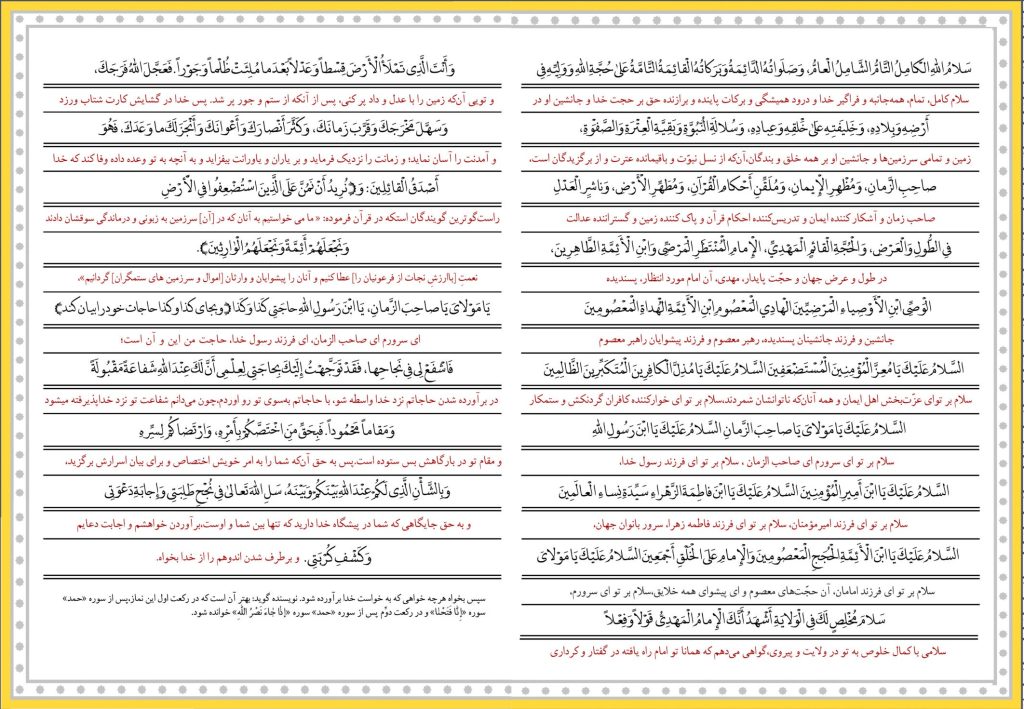 سَلامُ اللهِ الكامِلُ التّامُّ الشّامِلُ الْعامُّ، وَصَلَواتُهُ الدّائِمَةُ وَبَرَكاتُهُ الْقائِمَةُ التّامَّةُ عَلىٰ حُجَّةِ اللهِ وَوَلِيِّهِ في
سلام کامل، تمام، همه‌جانبه و فراگیر خدا و درود همیشگی و برکات پاینده و برازنده حق بر حجت خدا و جانشین او در
أَرْضِهِ وَبِلادِهِ، وَخَليفَتِهِ عَلىٰ خَلْقِهِ وَعِبادِهِ، وَسُلالَةِ النُّبُوَّةِ وَبَقِيَّةِ الْعِتْرَةِ وَالصَّفْوَةِ،
زمین و تمامی سرزمین‌ها و جانشین او بر همه خلق و بندگان،آن‌که از نسل نبوّت و باقیمانده عترت و از برگزیدگان است،
صاحِبِ الزَّمانِ، وَمُظْهِرِ الْإيمانِ، وَمُلَقِّنِ أَحْكامِ الْقُرْآنِ، وَمُطَهِّرِ الْأَرْضِ، وَناشِرِ الْعَدْلِ
صاحب زمان و آشکار کننده ایمان و تدریس‌کننده احکام قرآن و پاک کننده زمین و گستراننده عدالت
فِي الطُّولِ وَالْعَرْضِ، وَالْحُجَّةِ الْقائِمِ الْمَهْدِيِّ، الْإِمامِ الْمُنْتَظَرِ الْمَرْضِيِّ وَابْنِ الْأَئِمَّةِ الطّاهِرينَ،
در طول و عرض جهان و حجّت پایدار، مهدی، آن امام مورد انتظار، پسندیده
الْوَصِيِّ ابْنِ الْأَوْصِياءِ الْمَرْضِيِّينَ الْهادِي الْمَعْصُومِ ابْنِ الْأَئِمَّةِ الْهُداةِ الْمَعْصُومينَ
جانشین و فرزند جانشینان پسندیده، رهبر معصوم و فرزند پیشوایان راهبر معصوم
السَّلامُ عَلَيْكَ يا مُعِزَّ الْمُؤْمِنينَ الْمُسْتَضْعَفينَ السَّلامُ عَلَيْكَ يا مُذِلَّ الْكافِرينَ الْمُتَكَبِّرينَ الظّالِمينَ
سلام بر توای عزّت‌بخش اهل ایمان و همه آنان‌که ناتوانشان شمردند،سلام بر تو ای خوارکننده کافران گردنکش و ستمکار
السَّلامُ عَلَيْكَ يا مَوْلايَ يا صاحِبَ الزَّمانِ السَّلامُ عَلَيْكَ يَا ابْنَ رَسُولِ اللهِ
سلام بر تو ای سرورم ای صاحب الزمان ، سلام بر تو ای فرزند رسول خدا،
السَّلامُ عَلَيْكَ يَا ابْنَ أَميرِ الْمُؤْمِنينَ السَّلامُ عَلَيْكَ يَا ابْنَ فاطِمَةَ الزَّهْراءِ سَيِّدَةِ نِساءِ الْعالَمينَ
سلام بر تو ای فرزند امیرمؤمنان، سلام بر تو ای فرزند فاطمه زهرا، سرور بانوان جهان،
السَّلامُ عَلَيْكَ يَا ابْنَ الْأَئِمَّةِ الْحُجَجِ الْمَعْصُومينَ وَالْإِمامِ عَلَى الْخَلْقِ أَجْمَعينَ السَّلامُ عَلَيْكَ يا مَوْلايَ
سلام بر تو ای فرزند امامان، آن حجّت‌های معصوم و ای پیشوای همه خلایق،سلام بر تو ای سرورم،
سَلامَ مُخْلِصٍ لَكَ فِي الْوِلايَةِ أَشْهَدُ أَنَّكَ الْإِمامُ الْمَهْدِيُّ قَوْلاً وَفِعْلاً
سلامی با کمال خلوص به تو در ولایت و پیروی،گواهی می‌دهم که همانا تو امام راه یافته در گفتار و کرداری
وَأَنْتَ الَّذي تَمْلَأُ الْأَرْضَ قِسْطاً وَعَدْلاً بَعْدَ ما مُلِئَتْ ظُلْماً وَجَوْراً. فَعَجَّلَ اللهُ فَرَجَكَ،
و تویی آن‌که زمین را با عدل و داد پر کنی، پس از آنکه از ستم و جور پر شد. پس خدا در گشایش کارت شتاب ورزد
وَسَهَّلَ مَخْرَجَكَ وَقَرَّبَ زَمانَكَ، وَكَثَّرَ أَنْصارَكَ وَأَعْوانَكَ وَأَنْجَزَ لَكَ ما وَعَدَكَ، فَهُوَ
و آمدنت را آسان نماید؛ و زمانت را نزدیک فرماید و بر یاران و یاورانت بیفزاید و به آنچه به تو وعده داده وفا کند که خدا
أَصْدَقُ الْقائِلينَ: وَ﴿نُريدُ أَنْ نَمُنَّ عَلَى الَّذينَ اسْتُضْعِفُوا فِي الْأَرْضِ
راست‌گوترین گویندگان استکه در قرآن فرموده: « ما می خواستیم به آنان که در [آن] سرزمین به زبونی و درماندگی سوقشان دادند
وَنَجْعَلَهُمْ أَئِمَّةً وَنَجْعَلَهُمُ الْوارِثينَ﴾.
نعمتِ [باارزشِ نجات از فرعونیان را] عطا کنیم و آنان را پیشوایان و وارثان [اموال و سرزمین های ستمگران] گردانیم»،
يا مَوْلايَ يا صاحِبَ الزَّمانِ، يَا ابْنَ رَسُولِ اللهِ حاجَتي كَذا وَكَذا ﴿وبجای کذا وکذا حاجات خود را بیان کند﴾
ای سرورم ای صاحب الزمان، ای فرزند رسول خدا، حاجت من این و آن است؛
فَاشْفَعْ لي في نَجاحِها، فَقَدْ تَوَجَّهْتُ إِلَيْكَ بِحاجَتي لِعِلْمي أَنَّ لَكَ عِنْدَ اللهِ شَفاعَةً مَقْبُولَةً
در برآورده شدن حاجاتم نزد خدا واسطه شو، با حاجاتم به‌سوی تو رو اوردم،چون می‌دانم شفاعت تو نزد خداپذیرفته میشود
وَمَقاماً مَحْمُوداً. فَبِحَقِّ مَنِ اخْتَصَّكُمْ بِأَمْرِهِ، وَارْتَضاكُمْ لِسِرِّهِ
و مقام تو در بارگاهش بس ستوده است،پس به حق آن‌که شما را به امر خویش اختصاص و برای بیان اسرارش برگزید،
وَبِالشَّأْنِ الَّذي لَكُمْ عِنْدَ اللهِ بَيْنَكُمْ وَبَيْنَهُ، سَلِ اللهَ تَعالىٰ في نُجْحِ طَلِبَتي وَإِجابَةِ دَعْوَتي
و به حق جایگاهی که شما در پیشگاه خدا دارید که تنها بین شما و اوست،برآوردن خواهشم و اجابت دعایم
وَكَشْفِ كُرْبَتي. و برطرف شدن اندوهم را از خدا بخواه.
سپس بخواه هرچه خواهی که به خواست خدا برآورده شود. نویسنده گوید: بهتر آن است که در رکعت اول این نماز،پس از سوره «حمد»
سوره «إِنَّا فَتَحْنَا» و در رکعت دوّم پس از سوره «حمد» سوره «إِذَا جَاءَ نَصْرُ اللَّهِ» خوانده شود.